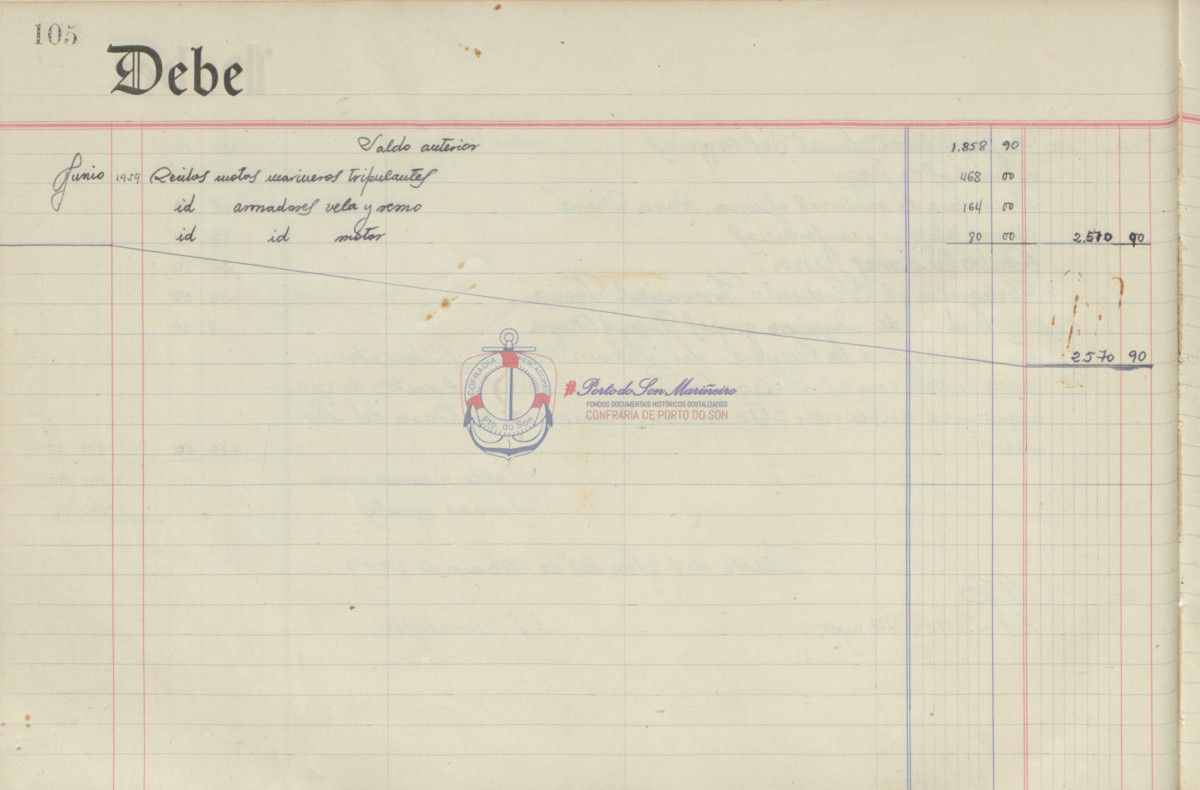 105
Debe
Saldo anterior 1.858 90
Junio 1.959 Recibos motos marineros tripulantes 468 00
id armadores vela y remo 164 00
id id motor 80 00 2.570 90
2.570 90
COFRADIA PESCADORES
Pto. do Son
#Porto do Son Mariñeiro
FONDOS DOCUMENTAIS HISTÓRICOS DIXITALIZADOS
CONFRARÍA DE PORTO DO SON